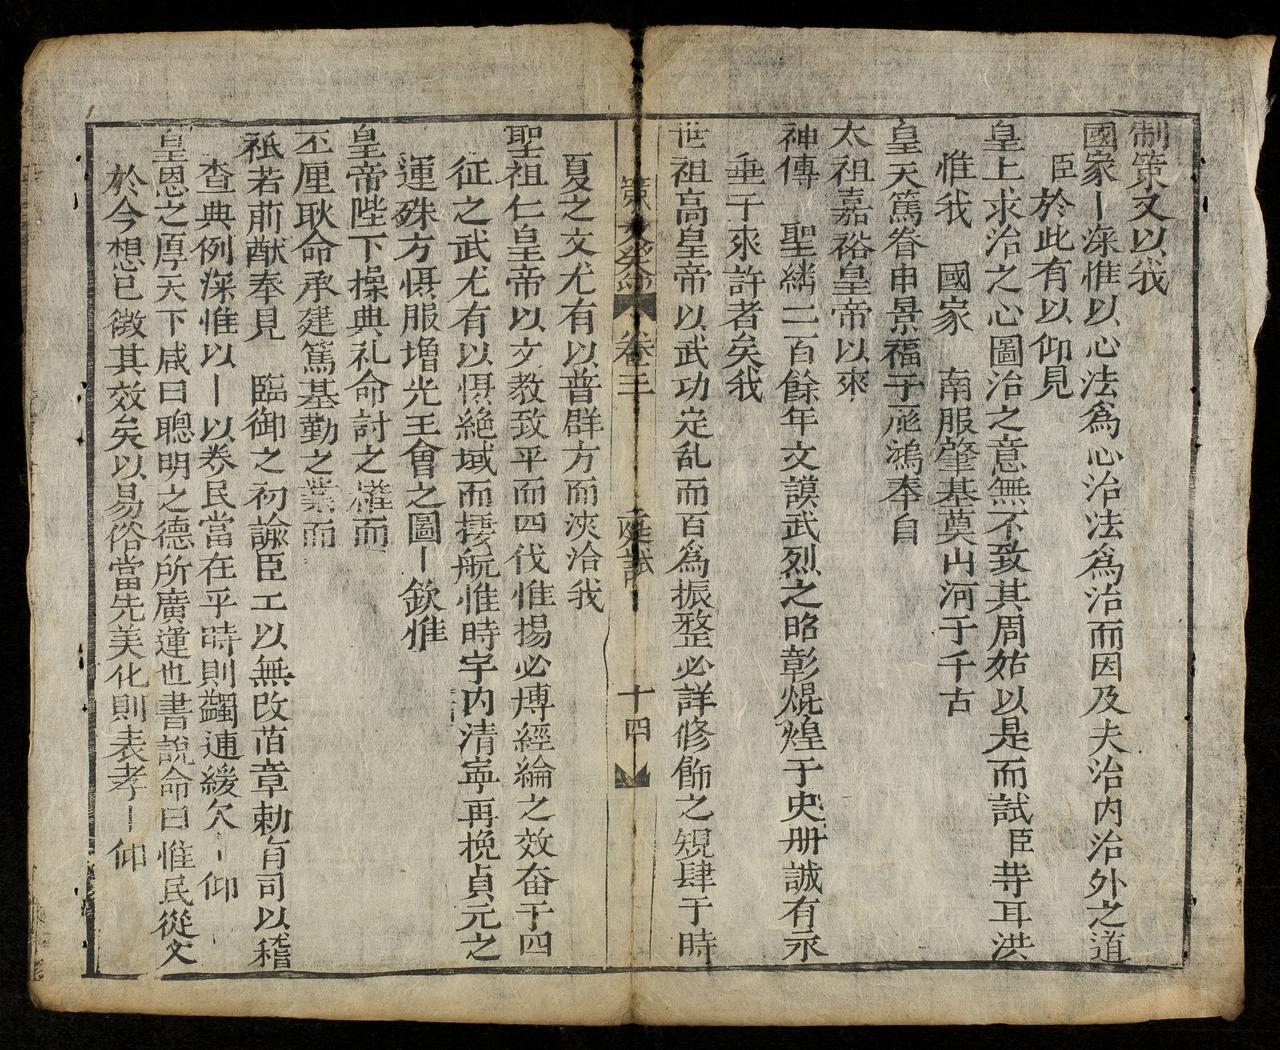 制策又以我
國家丨深惟以心法爲心治法爲治而因及夫治内治外之道
臣於此有以仰見
皇上求治之心圖治之意無不致其周始以是而試臣䓁耳洪
惟我　國家　南服肇基奠山河于千古
皇天篤眷申景福于庬鴻奉自
太祖嘉裕皇帝以來
神傳　聖繼二百餘年文謨武烈之昭彰焜煌于史册誠有永
垂于來許者矣我
世祖高皇帝以武功定乱而百爲振整必詳修飾之規肆于時
策 卷三 庭試 十四
夏之文尤有以普群方而浹洽我
聖祖仁皇帝以文教致平而四伐惟揚必慱經綸之效奋于四
征之武尤有以惧絶域而棲航惟時宇内清寧再挽貞元之
運殊方惧服增光王會之圖丨欽惟
皇帝陛下操典礼命討之權而
丕厘耿命承建篤基勤之業而
祗若前猷奉見　臨御之初諭臣工以無改旧章勅有司以稽
查典例深惟以丨以养民當在乎時則蠲逋緩欠丨仰
皇恩之厚天下咸曰聰明之德所廣運也書説命曰惟民從乂
於今想已徵其效矣以易俗當先美化則表孝丨仰